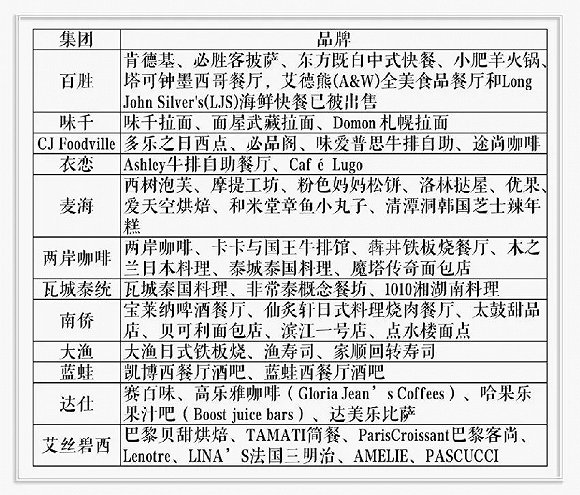 集团 品牌
百胜
肯德基、必胜客披萨、东方既白中式快餐、小肥羊火锅、
塔可钟墨西哥餐厅，艾德熊(A&W)全美食品餐厅和Long
John Silver's(LJS)海鲜快餐已被出售
味千 味千拉面、面屋武藏拉面、Domon 札幌拉面
CJ Foodville 多乐之日西点、必品阁、味爱普思牛排自助、途尚咖啡
衣恋 Ashley牛排自助餐厅、Caf é Lugo
麦海
西树泡芙、摩提工坊、粉色妈妈松饼、洛林挞屋、优果、
爱天空烘焙、和米堂章鱼小丸子、清潭洞韩国芝士辣年
糕
两岸咖啡
两岸咖啡、卡卡与国王牛排馆、犇丼铁板烧餐厅、木之
兰日本料理、泰城泰国料理、魔塔传奇面包店
瓦城泰统 瓦城泰国料理、非常泰概念餐坊、1010湘湖南料理
南侨
宝莱纳啤酒餐厅、仙炙轩日式料理烧肉餐厅、太鼓甜品
店、贝可利面包店、滨江一号店、点水楼面点
大渔 大渔日式铁板烧、渔寿司、家顺回转寿司
蓝蛙 凯博西餐厅酒吧、蓝蛙西餐厅酒吧
达仕
赛百味、高乐雅咖啡（Gloria Jean’s Coffees）、哈果乐
果汁吧（Boost juice bars）、达美乐比萨
艾丝碧西
巴黎贝甜烘焙、TAMATI简餐、ParisCroissant巴黎客尚、
Lenotre、LINA’S法国三明治、AMELIE、PASCUCCI